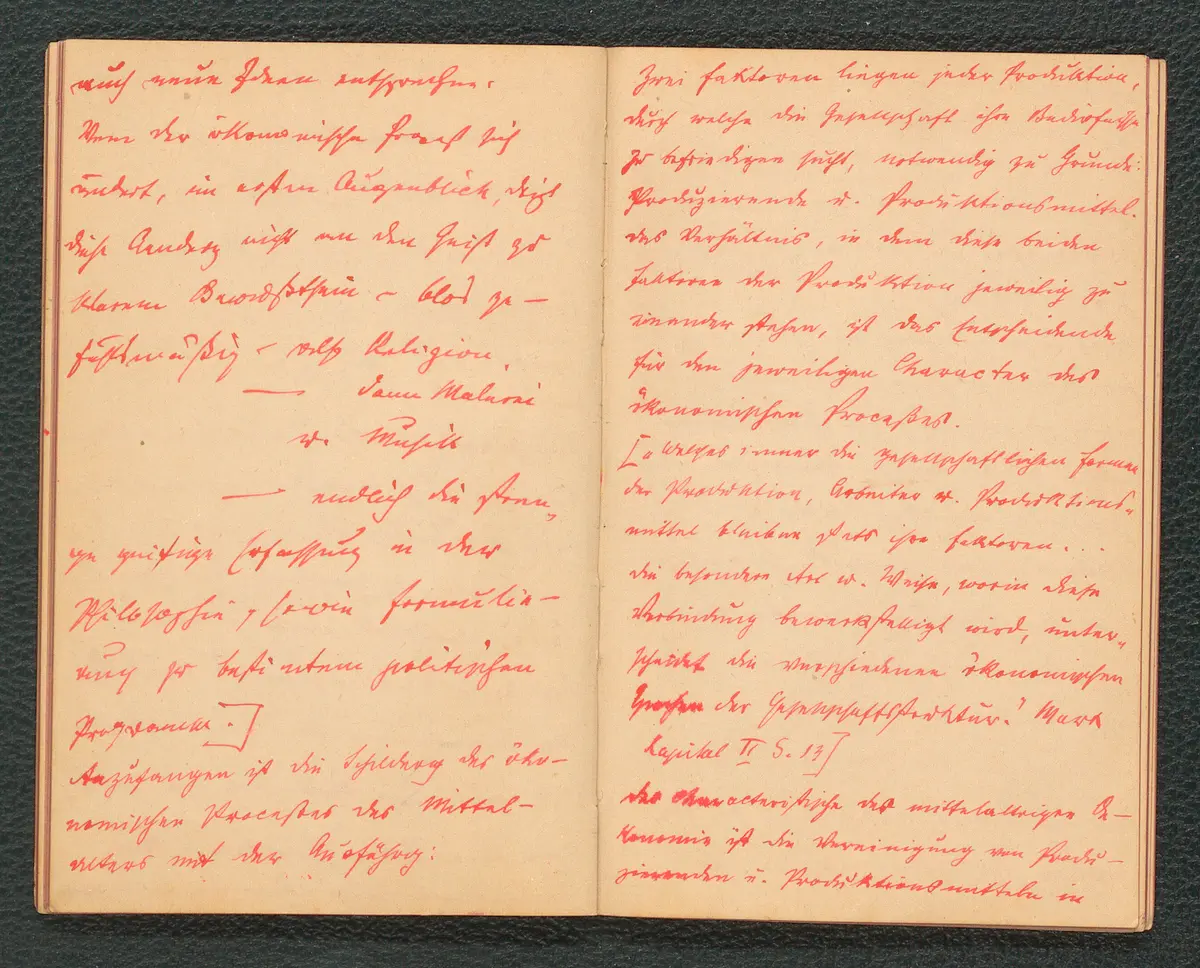 auch neue Ideen entsprechen.
Wenn der ökonomische Proceß sich
ändert, im ersten Augenblick, dringt
diese Aenderg nicht an den Geist zu
klarem Bewußtsein – blos ge–
fühlsmäßig – als Religion.
— dann Malerei
u. Musik
— endlich die stren„
ge geistige Erfassung in der
Philosophie, sowie Formulie–
rung zu bestimtem politischen
Programme.]
Anzufangen ist die Schilderg des öko–
nomischen Processes des Mittel–
alters mit der Ausführg:
Zwei Faktoren liegen jeder Produktion,
durch welche die Gesellschaft ihre Bedürfnisse
zu befriedigen sucht, notwendig zu Grunde:
Produzierende u. Produktionsmittel.
Das Verhältnis, in dem diese beiden
Faktoren der Produktion jeweilig zu
einander stehen, ist das Entscheidende
für den jeweiligen Character des
ökonomischen Processes.
[„Welches immer die gesellschaftlichen Formen
der Produktion, Arbeiter u. Produktions„
mittel bleiben stets ihre Faktoren...
Die besondere Art u. Weise, worin diese
Verbindung bewerkstelligt wird, unter„
scheidet die verschiedenen ökonomischen
Epochen der Gesellschaftsstruktur.“ Marx
Kapital II S. 13]
Das Characteristische des mittelaltrigen Oe–
konomie ist die Vereinigung von Produ–
zierenden u. Produktionsmitteln in